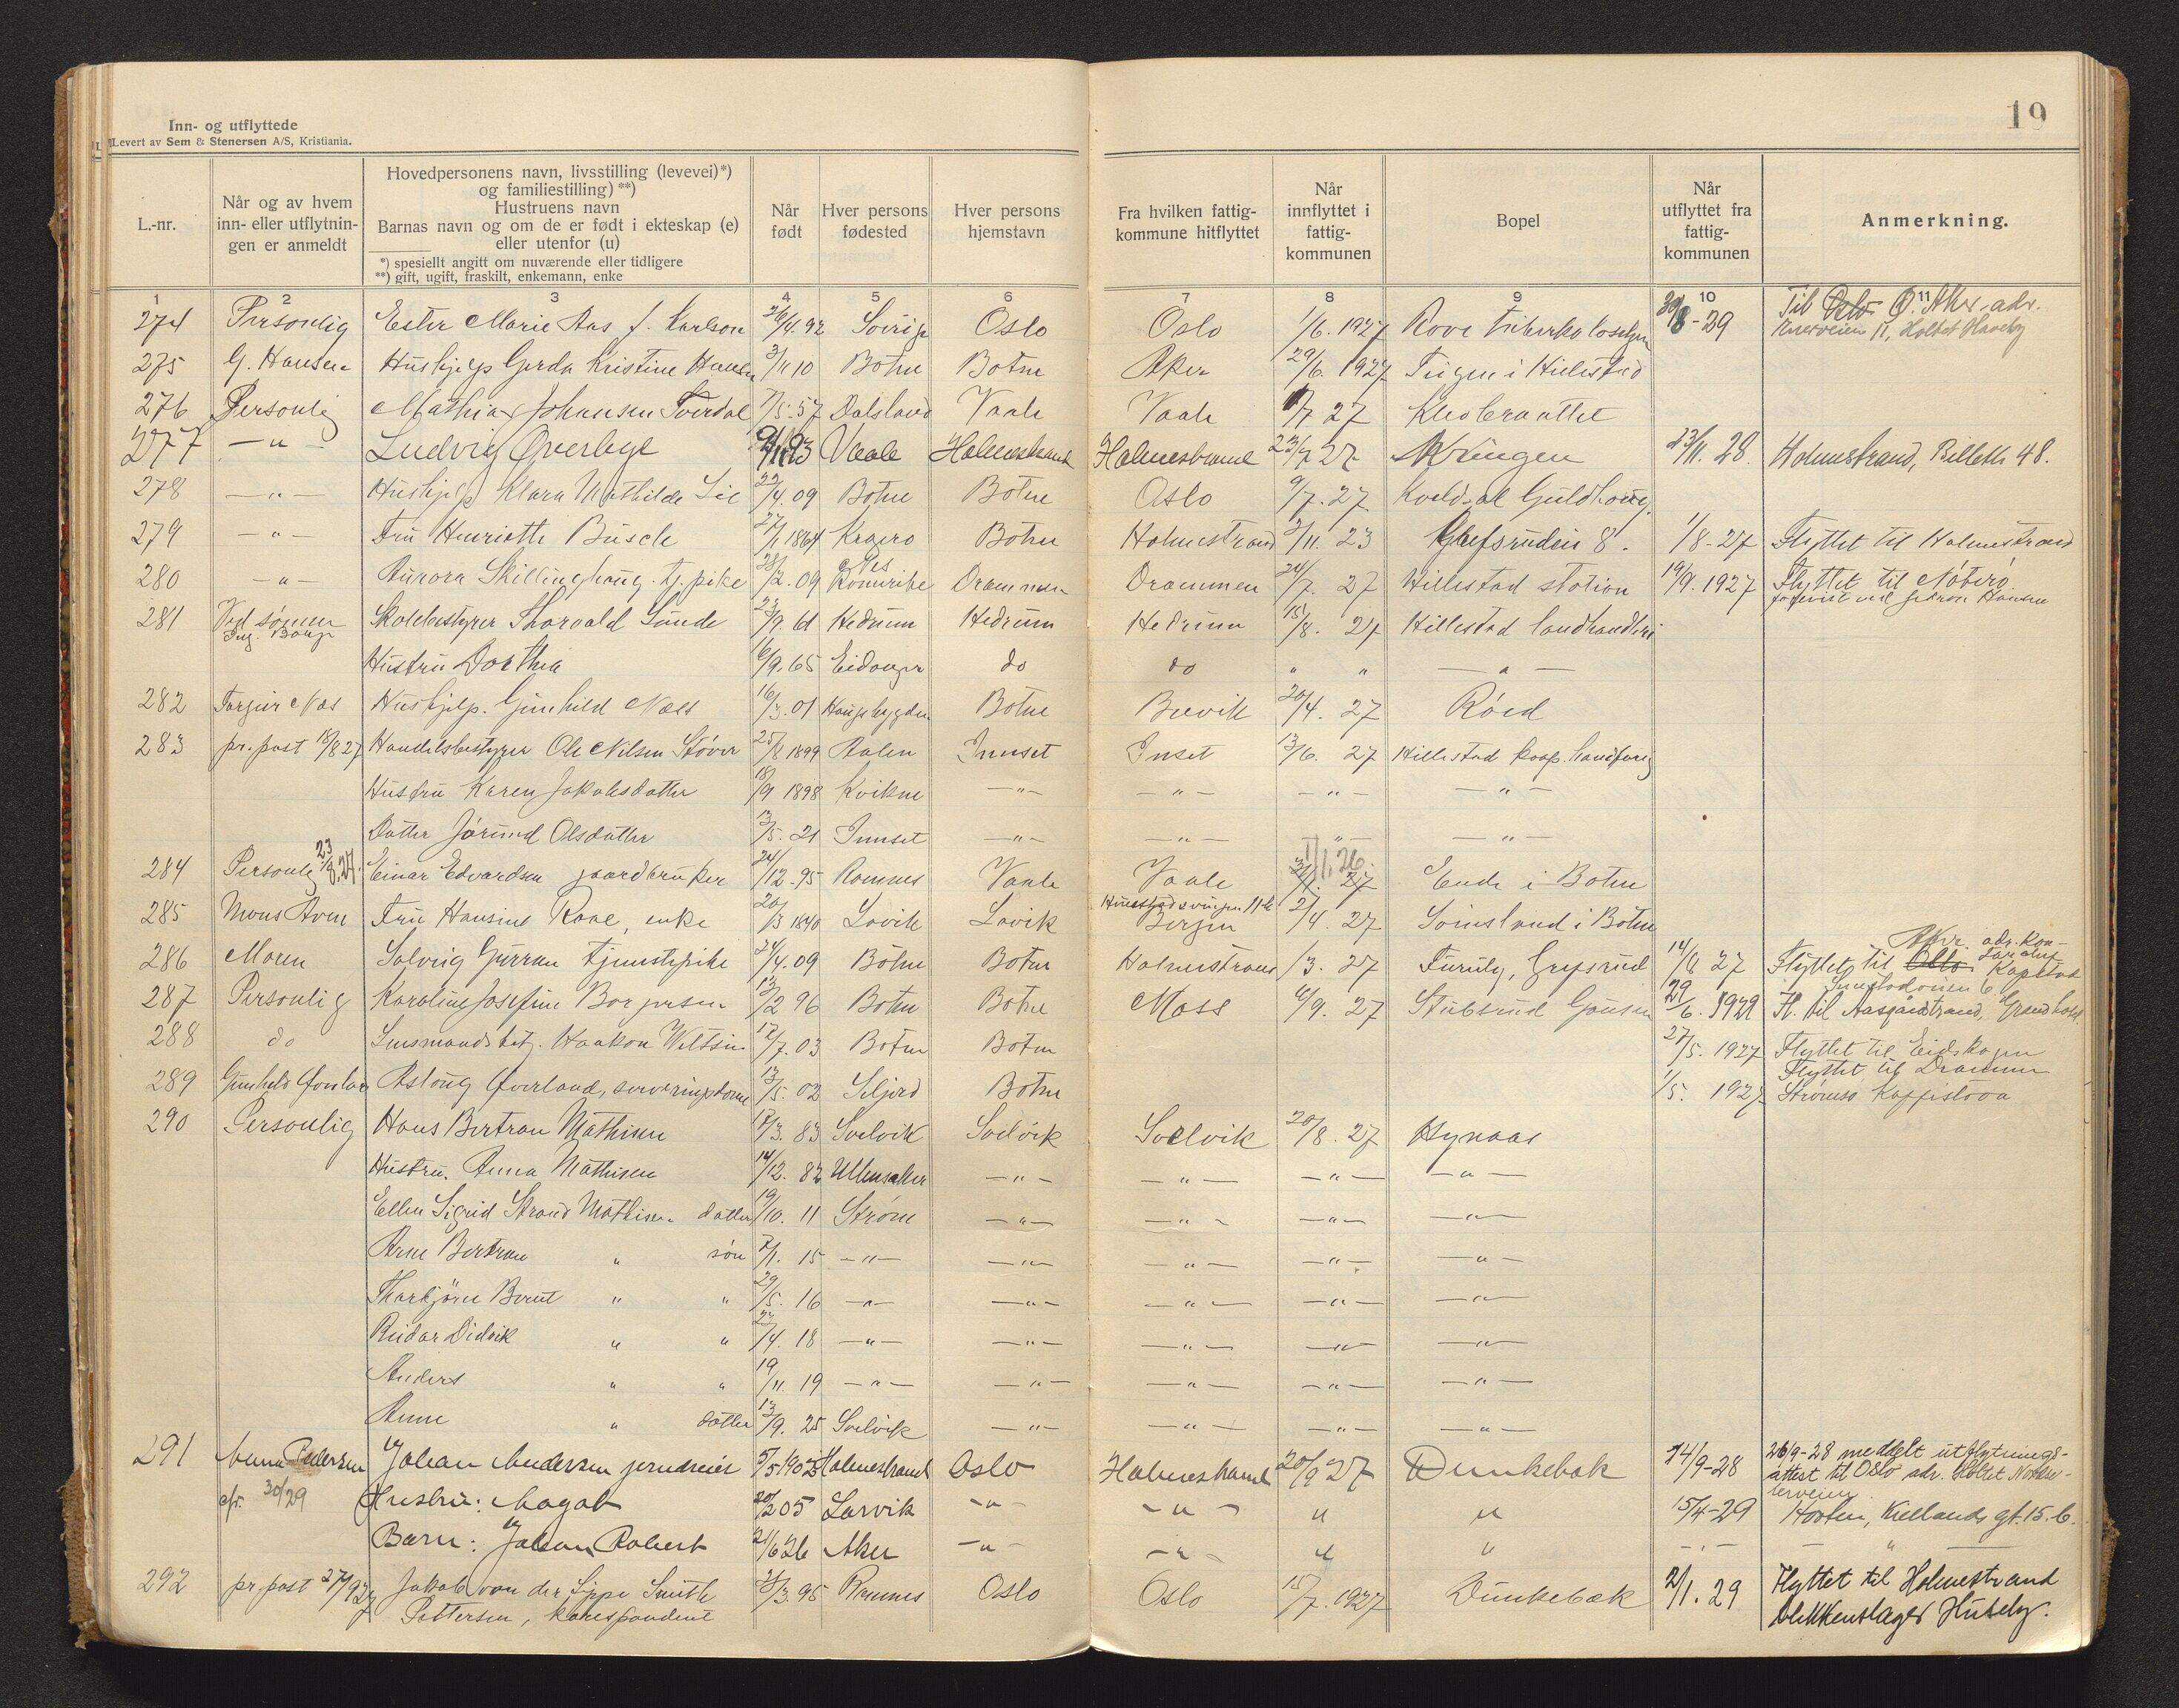 Inn- og utflyttede
Levert av Sem & Stenersen A/S, Kristiania.
19
L.-nr. Når og av hvem inn- eller utflytningen er anmeldt Hovedpersonens navn, livsstilling (levevei)*) og familiestilling)**) Hustruens navn Barnas navn og om de er født i ekteskap (e) eller utenfor (u) Når født Hver persons fødested Hver persons hjemstavn Fra hvilken fattigkommune hitflyttet Når innflyttet i fattigkommunen Bopel Når utflyttet fra fattigkommunen Anmerkning.
*) spesiellt angitt om nuværende eller tidligere
**) gift, ugift, fraskilt, enkemann, enke
1 2 3 4 5 6 7 8 9 10 11
274 Personlig Ester Marie Aas f. Karlson 26/4.92 Sverige Oslo Oslo 1/6.1927 Rove 30/8-29 Til Oslo Ø. Aker adr.
275 G. Hansen Hushjelp Gerda Kristine Hansen 3/11 10 Botne Botne Aker 29/6.1927 i Hillestad
276 Personlig Mathias Johansen Tverdal 7/5-57 Dalsland Vaale Vaale 1/7 27 Klevbraattet
277 —"— Ludvig Øverbye 9/11 93 Vaale Holmestrand Holmestrand 23/7 27 Kringen 23/11.28. Holmestrand, Billeth 48.
278 —"— Hushjelp Klara Mathilde Lie 22/4.09 Botne Botne Oslo 9/7.27 Guldhaug
279 —"— Fru Henriette Busch 27/1 1864 Kragerø Botne Holmestrand 2/11.23 Grefsrudin 8. 1/8-27 Flyttet til Holmestrand
280 —"— Aurora Skillinghaug tj.pike 28/2.09 Romerike Drammen Drammen 24/7.27 Hillestad station 19/9.1927 Flyttet til Nøterø
281 Ved sønnen Skolebestyrer Thorvald Sunde 23/9.61 Hedrum Hedrum Hedrum 15/8.27 Hillestad landhandleri
Hustru Dorthea 16/9.65 Eidanger do do " " —"—
282 Torgeir Næs Hushjelp. Gunhild Næss 16/3.01 Botne Brevik 20/4.27 Røed
283 pr. post 18/8 27 Handelsbestyrer Ole Nilsen Støver 25/8 1899 Aalen Innset Inset 13/6.27 Hillestad koop. handforeg
Hustru Karen Jakobsdatter 18/9 1898 Kvikne —"— —"— —"— —"—
Datter Jørund Olsdatter 13/5.21 Innset —"— —"— —"— —"—
284 Personlig 23/8.27. Einar Edvardsen gaardbruker 24/12.95 Ramnes Vaale Vaale 1/1.26. Ende i Botne
285 Mons Aven Fru Hansine Raae, enke 20/3 1840 Lavik Lavik Bergen 27/4.27 Soinsland i Botne
286 Moren Solveig Gurran tjenestepike 24/4.09 Botne Botne Holmestrand /3.27 Furuly, Grefsrud 14/8 27 Flyttet til Oslo Aker. adr. Kon-
287 Personlig Karoline Josefine Borgersen 13/2 96 Botne Botne Moss 6/9.27 Stubsrud 29/6.1929 Fl. til Aasgårdstrand, Grand hotel
288 do Lensmandsbetj. Haakon Weltzin 12/7.03 Botne Botne 27/5.1927 Flyttet til Eidskogen
289 Gunhild Aslaug Øverland, serveringsdame 13/5.02 Seljord Botne 1/5.1927 Flyttet til Drammen
Strømsø Kaffistova
290 Personlig Hans Bertran Mathisen 17/3.83 Svelvik Svelvik Svelvik 20/8.27 Hynaas
Hustru. Anna Mathisen 14/12.82 Ullensaker —"— —"— —"— —"—
Ellen Sigrid Strand Mathisen datter 19/10.11 Strøm —"— —"— —"— —"—
Arne Bertran " søn 7/1.15 —"— —"— —"— —"— —"—
Thorbjørn Bernt " " 29/5.16 —"— —"— —"— —"— —"—
Reidar Didrik " " 22/4.18 —"— —"— —"— —"— —"—
Anders " " 19/11.19 —"— —"— —"— —"— —"—
Anne " datter 13/9.25 Svelvik —"— —"— —"— —"—
291 Anna Pedersen Johan Andersen 5/5 1902 Holmestrand Oslo Holmestrand 20/9 27 Dunkebak 24/9-28 26/9-28 meddelt utflytnings-
attest til Oslo adr. Holtet
cfr. 30/29 Hustru: Magot 20/2 05 Larvik —"— —"— " " 15/4-29 Horten, Kiellands gt. 15.b.
Barn: Johan Robert 21/6 26 Aker —"— —"— " " —"— "
292 pr. post 27/9 27 Jakob von der Lippe Smith 25/3.95 Ramnes Oslo Oslo 15/7.1927 Dunkebæk 2/1.29 Flyttet til Holmestrand
Pettersen, korrespondent blikkenslager Huseby.